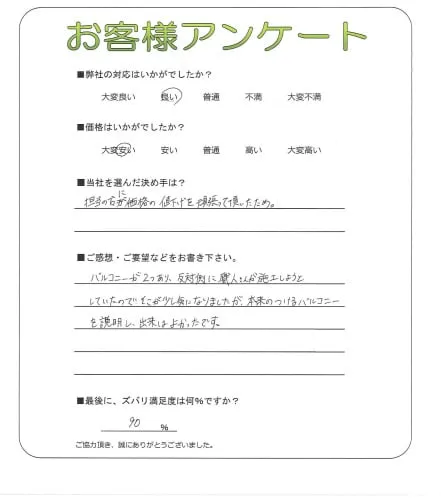 お客様アンケート
■弊社の対応はいかがでしたか？
大変良い 良い 普通 不満 大変不満
■価格はいかがでしたか？
大変安い 安い 普通 高い 大変高い
■当社を選んだ決め手は？
担当の方に価格の値下げを頑張って頂したため。
■ご感想・ご要望などをお書き下さい。
バルコニーが2つあり、反対側に職人さんが施工しようと
していたのでそこが少し気になりましたが、本来のつけるバルコニー
を説明し、出来はよかったです。
■最後に、ズバリ満足度は何％ですか？
90 ％
ご協力頂き、誠にありがとうございました。